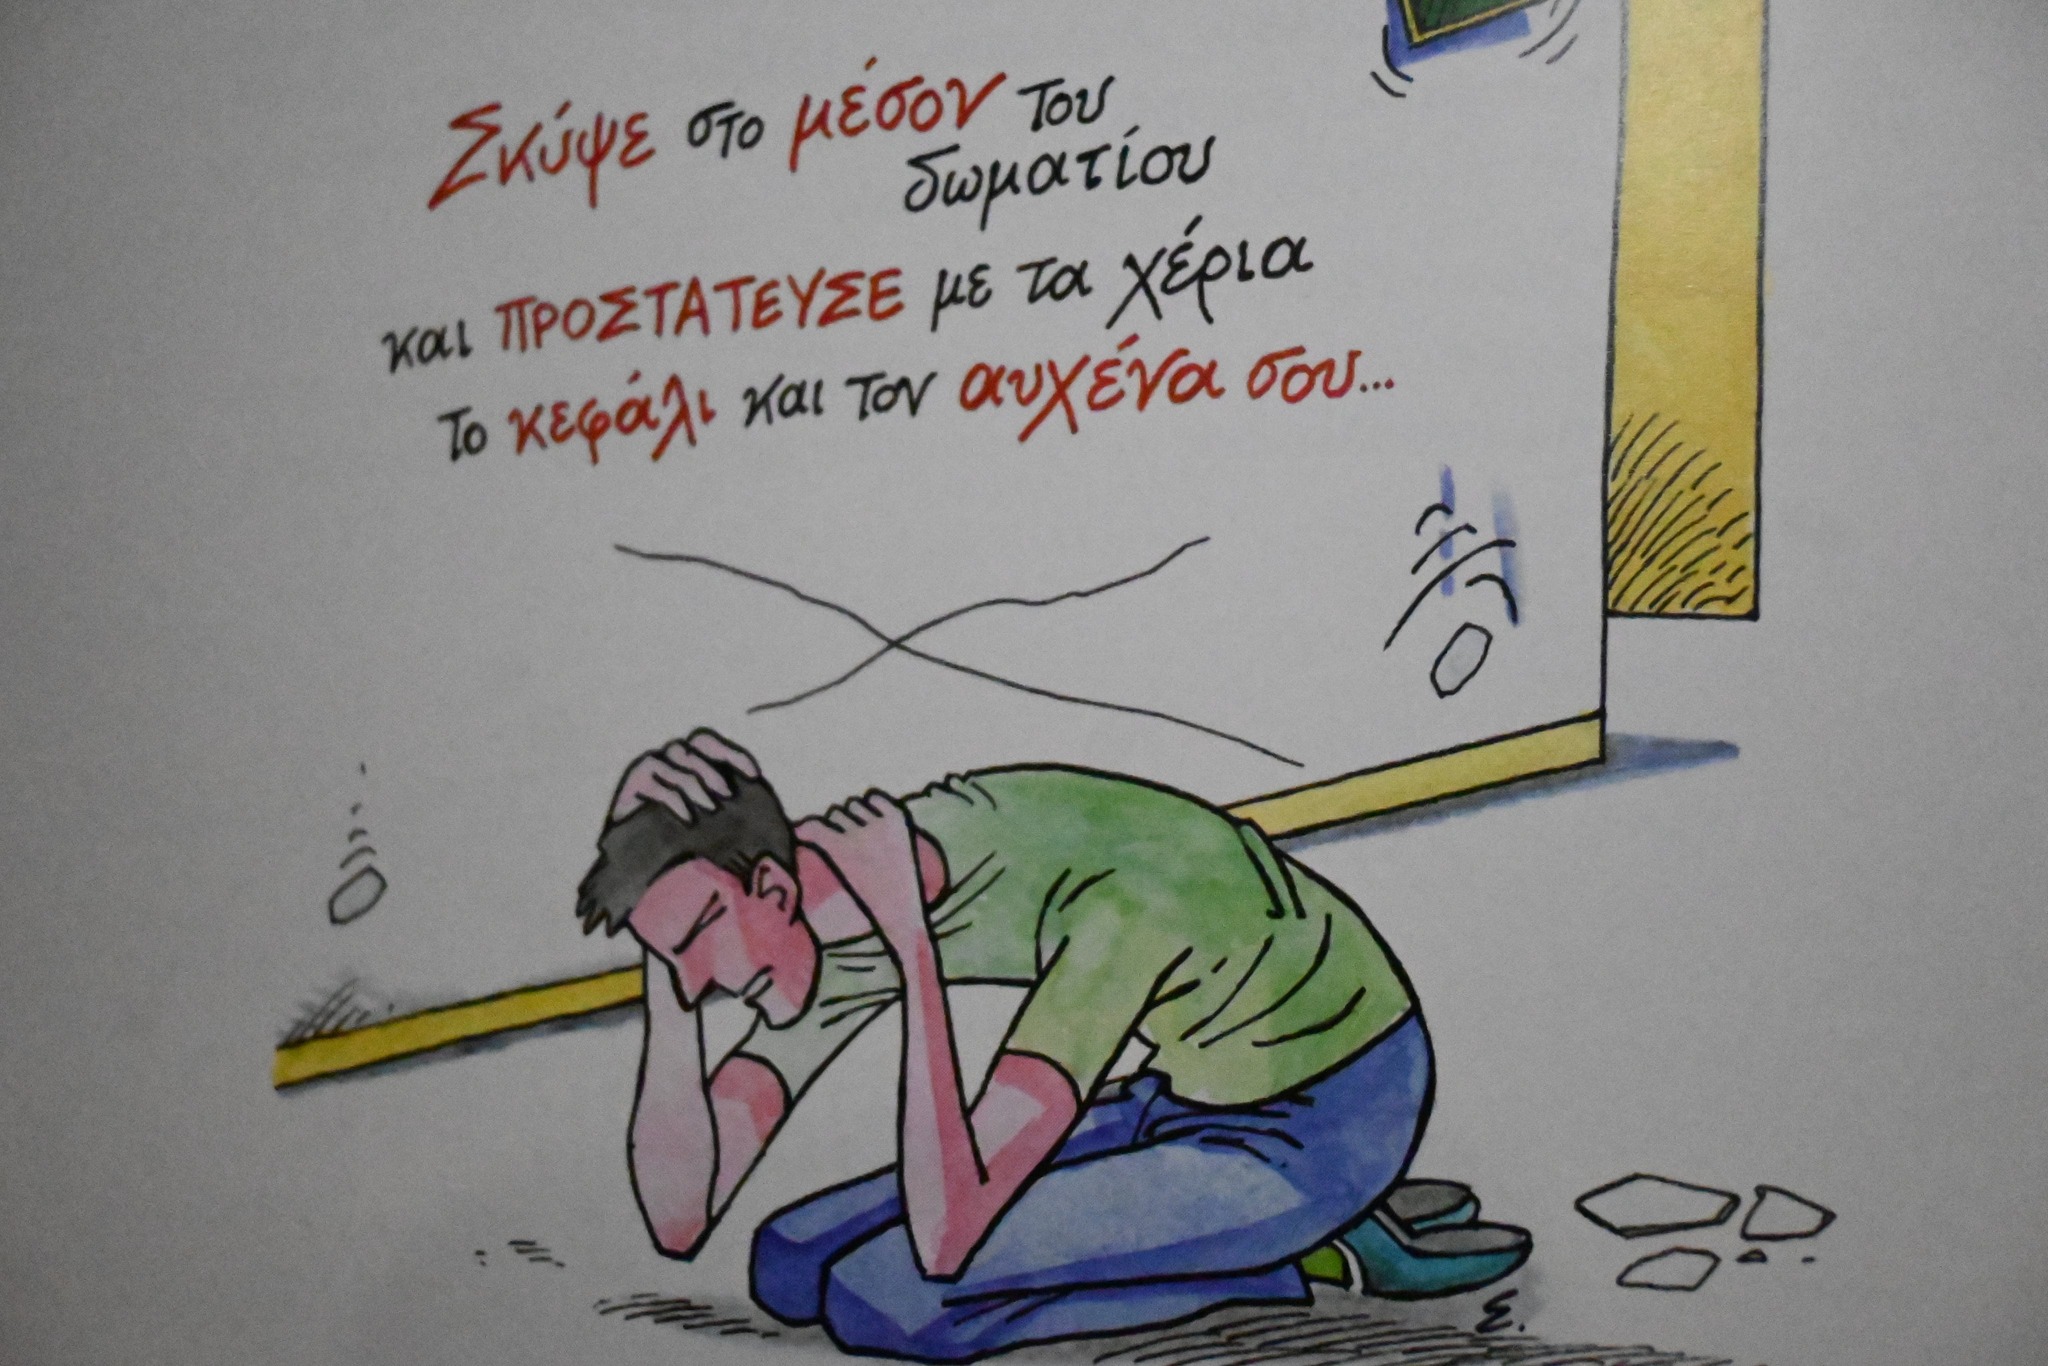 Σκύψε στο μέσον του
δωματίου
και ΠΡΟΣΤΑΤΕΥΣΕ με τα χέρια
το κεφάλι και τον αυχένα σου...
Σ.